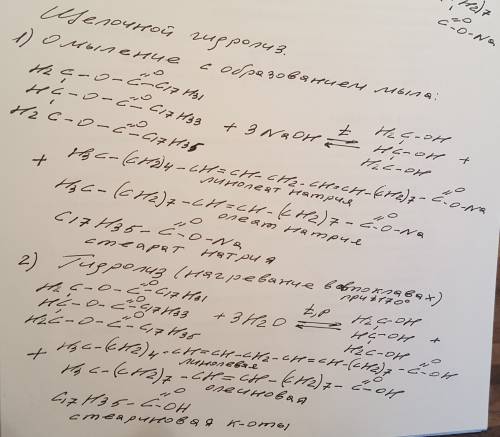 H2)7
C=O
-O-Na
Щелочной гидролиз.
1) Омыление с образованием мыла:
H2C-O-C=O C17H31
HC-O-C=O C17H33 + 3NaOH t ⇌ H2C-OH
H2C-O-C=O C17H35 HC-OH +
H2C-OH
+ H3C-(CH2)4-CH=CH-CH2-CH=CH-(CH2)7-C=O-O-Na
линолеат натрия
H3C-(CH2)7-CH=CH-(CH2)7-C=O-O-Na
олеат натрия
C17H35-C=O-O-Na
стеарат натрия
2) Гидролиз (нагревание в автоклавах)
при 170°
H2C-O-C=O C17H31
HC-O-C=O C17H33 + 3H2O t,p ⇌ H2C-OH
H2C-O-C=O C17H35 HC-OH +
H2C-OH
+ H3C-(CH2)4-CH=CH-CH2-CH=CH-(CH2)7-C=O OH
линолевая
H3C-(CH2)7-CH=CH-(CH2)7-C=O OH
олеиновая
C17H35-C=O OH
стеариновая к-оты